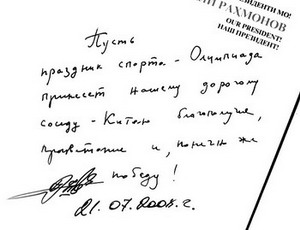 ПРЕЗИДЕНТИ МО!
РАХМОНОВ
OUR PRESIDENT!
НАШ ПРЕЗИДЕНТ!
Пусть
праздник спорта - Олимпиада
принесет нашему дорогому
соседу - Китаю благополучие,
процветание и, конечно же
победу!
21.07.2008.г.